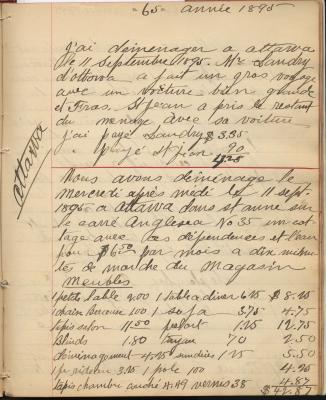 - 65 - année 1895
J'ai déménager a attawa
le 11 Septembre 1895. Mr Landry
d'ottowa a fait un gros voyage
avec un voiture bien grande
et Firas. St jean a pris le restant
du menage avec sa voiture
j'ai payé Landry $3.35
" payé St jean 90
4.25
attawa
Nous avons déménagé le
Mercredi après médi le 11 sept.
1895 a Attawa dans st anne sur
le carré Anglesea No 35 un cot
tage avec les dépendences et l'eau
pour $6.50 par mois a dix minu
tes de marche du Magasin
Meubles
1 petite table 2.00 1 table a diner 6.25 $8.25
1 chair berceuse 100 1 sofa 3.75 4.75
tapis salon 11.50 prélart 1.25 12.75
Blinds 1.80 70 2.50
déménagement 4.25 sundries 1.25 5.50
1 pr rideau 3.25 1 pole 100 4.25
tapis chambre couché 4.49 vernis 38 4.87
$42.87